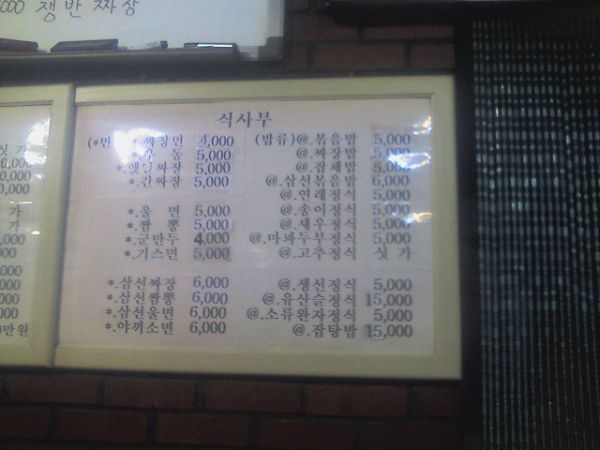 ,000 쟁반짜장
식사부
짜장면 4,000
우동 5,000
*.옛날짜장 5,000
*.간짜장 5,000
*.울면 5,000
*.짬뽕 5,000
*.군만두 4,000
*.기스면 5,000
*.삼선짜장 6,000
*.삼선짬뽕 6,000
*.삼선울면 6,000
*.야끼소면 6,000
(밥류)@.볶음밥 5,000
@.짜장밥 5,000
@.잡채밥 5,000
@.삼선볶음밥 6,000
@.연래정식 5,000
@.송이정식 5,000
@.새우정식 5,000
@.마파두부정식 5,000
@.고추정식 싯가
@.생선정식 5,000
@.유산슬정식 15,000
@.소류완자정식 5,000
@.잡탕밥 15,000